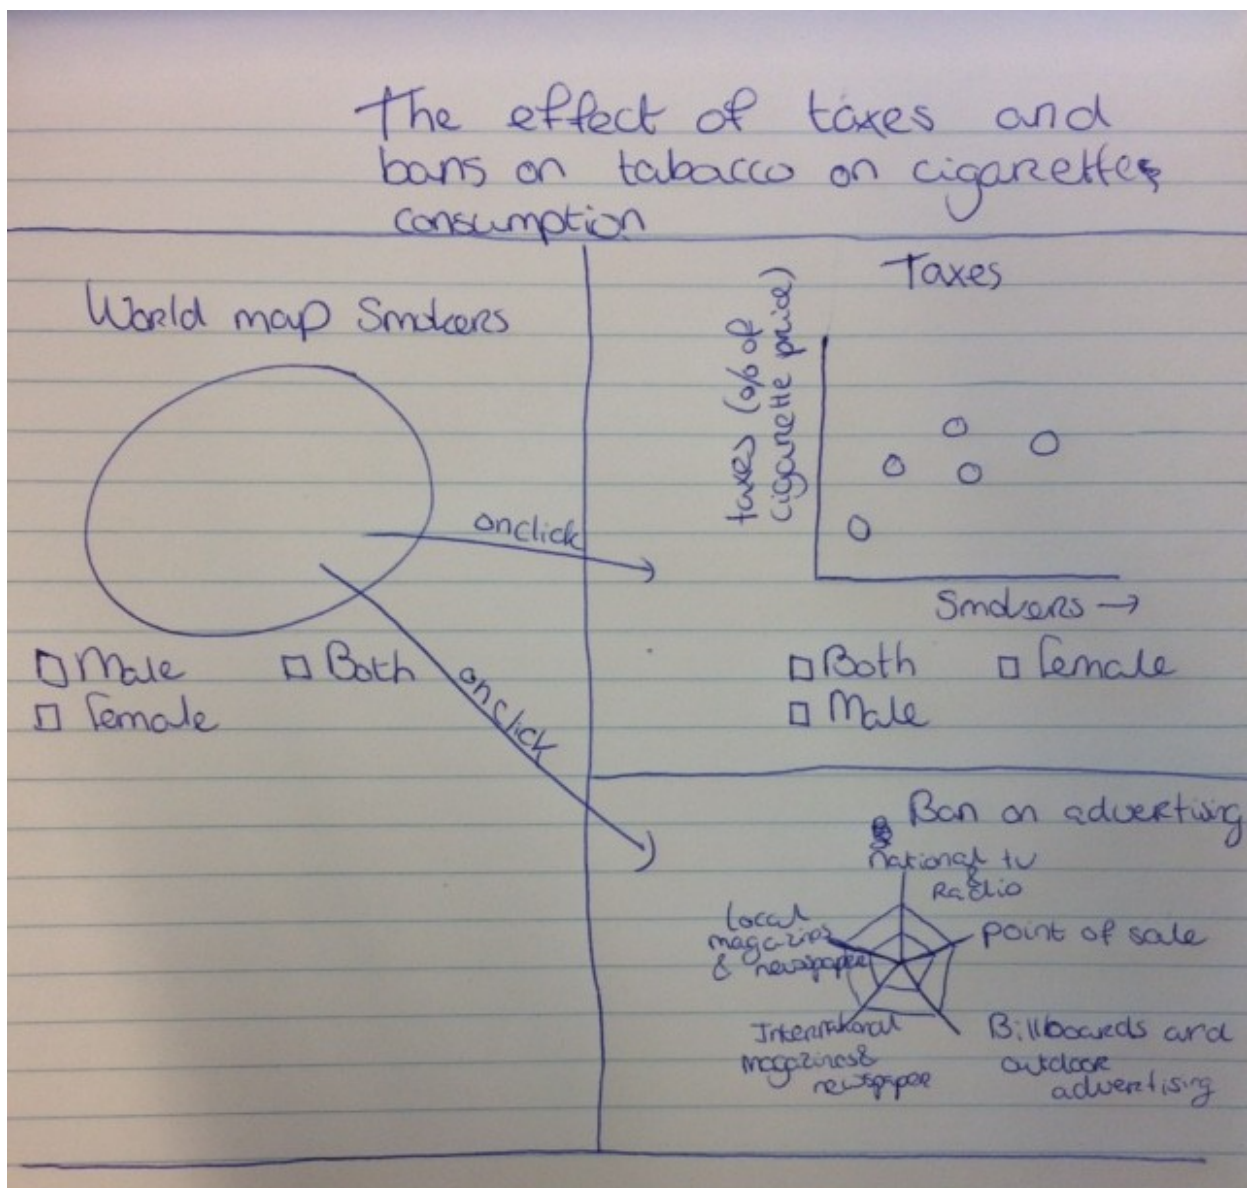 The effect of taxes and
bans on tabacco on cigarettes
consumption
World map Smokers
onclick
onclick
Male
Both
Female
Taxes
taxes (% of
cigarette price)
Smokers →
Both
Female
Male
Ban on advertising
national tv
&
Radio
point of sale
Billboards and
outdoor
advertising
International
magazines &
newspaper
Local
magazines
& newspaper